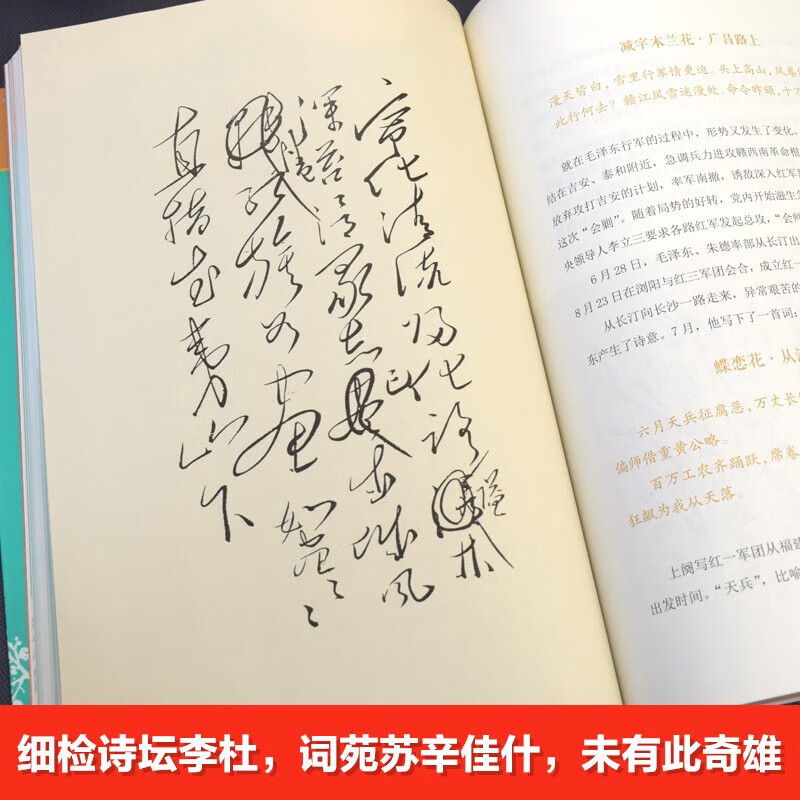 宁化清流归化路隘林
深苔滑
族如画
直指武夷山下
减字木兰花·广昌路上
漫天皆白，雪里行军情更迫。头上高山，风卷
此行何去？赣江风雪迷漫处。命令昨颁，十万
就在毛泽东行军的过程中，形势又发生了变化。
结在吉安、泰和附近，急调兵力进攻赣西南革命根
放弃攻打吉安的计划，率军南撤，诱敌深入红军
这次“会剿”。随着局势的好转，党内开始滋生
央领导人李立三要求各路红军发起总攻，“会师
6月28日，毛泽东、朱德率部从长汀出
8月23日在浏阳与红三军团会合，成立红一
从长汀向长沙一路走来，异常艰苦的
东产生了诗意。7月，他写下了一首词：
蝶恋花·从
六月天兵征腐恶，万丈长
偏师借重黄公略。
百万工农齐踊跃，席卷
狂飙为我从天落。
上阕写红一军团从福建
出发时间。“天兵”，比喻
细检诗坛李杜，词苑苏辛佳什，未有此奇雄